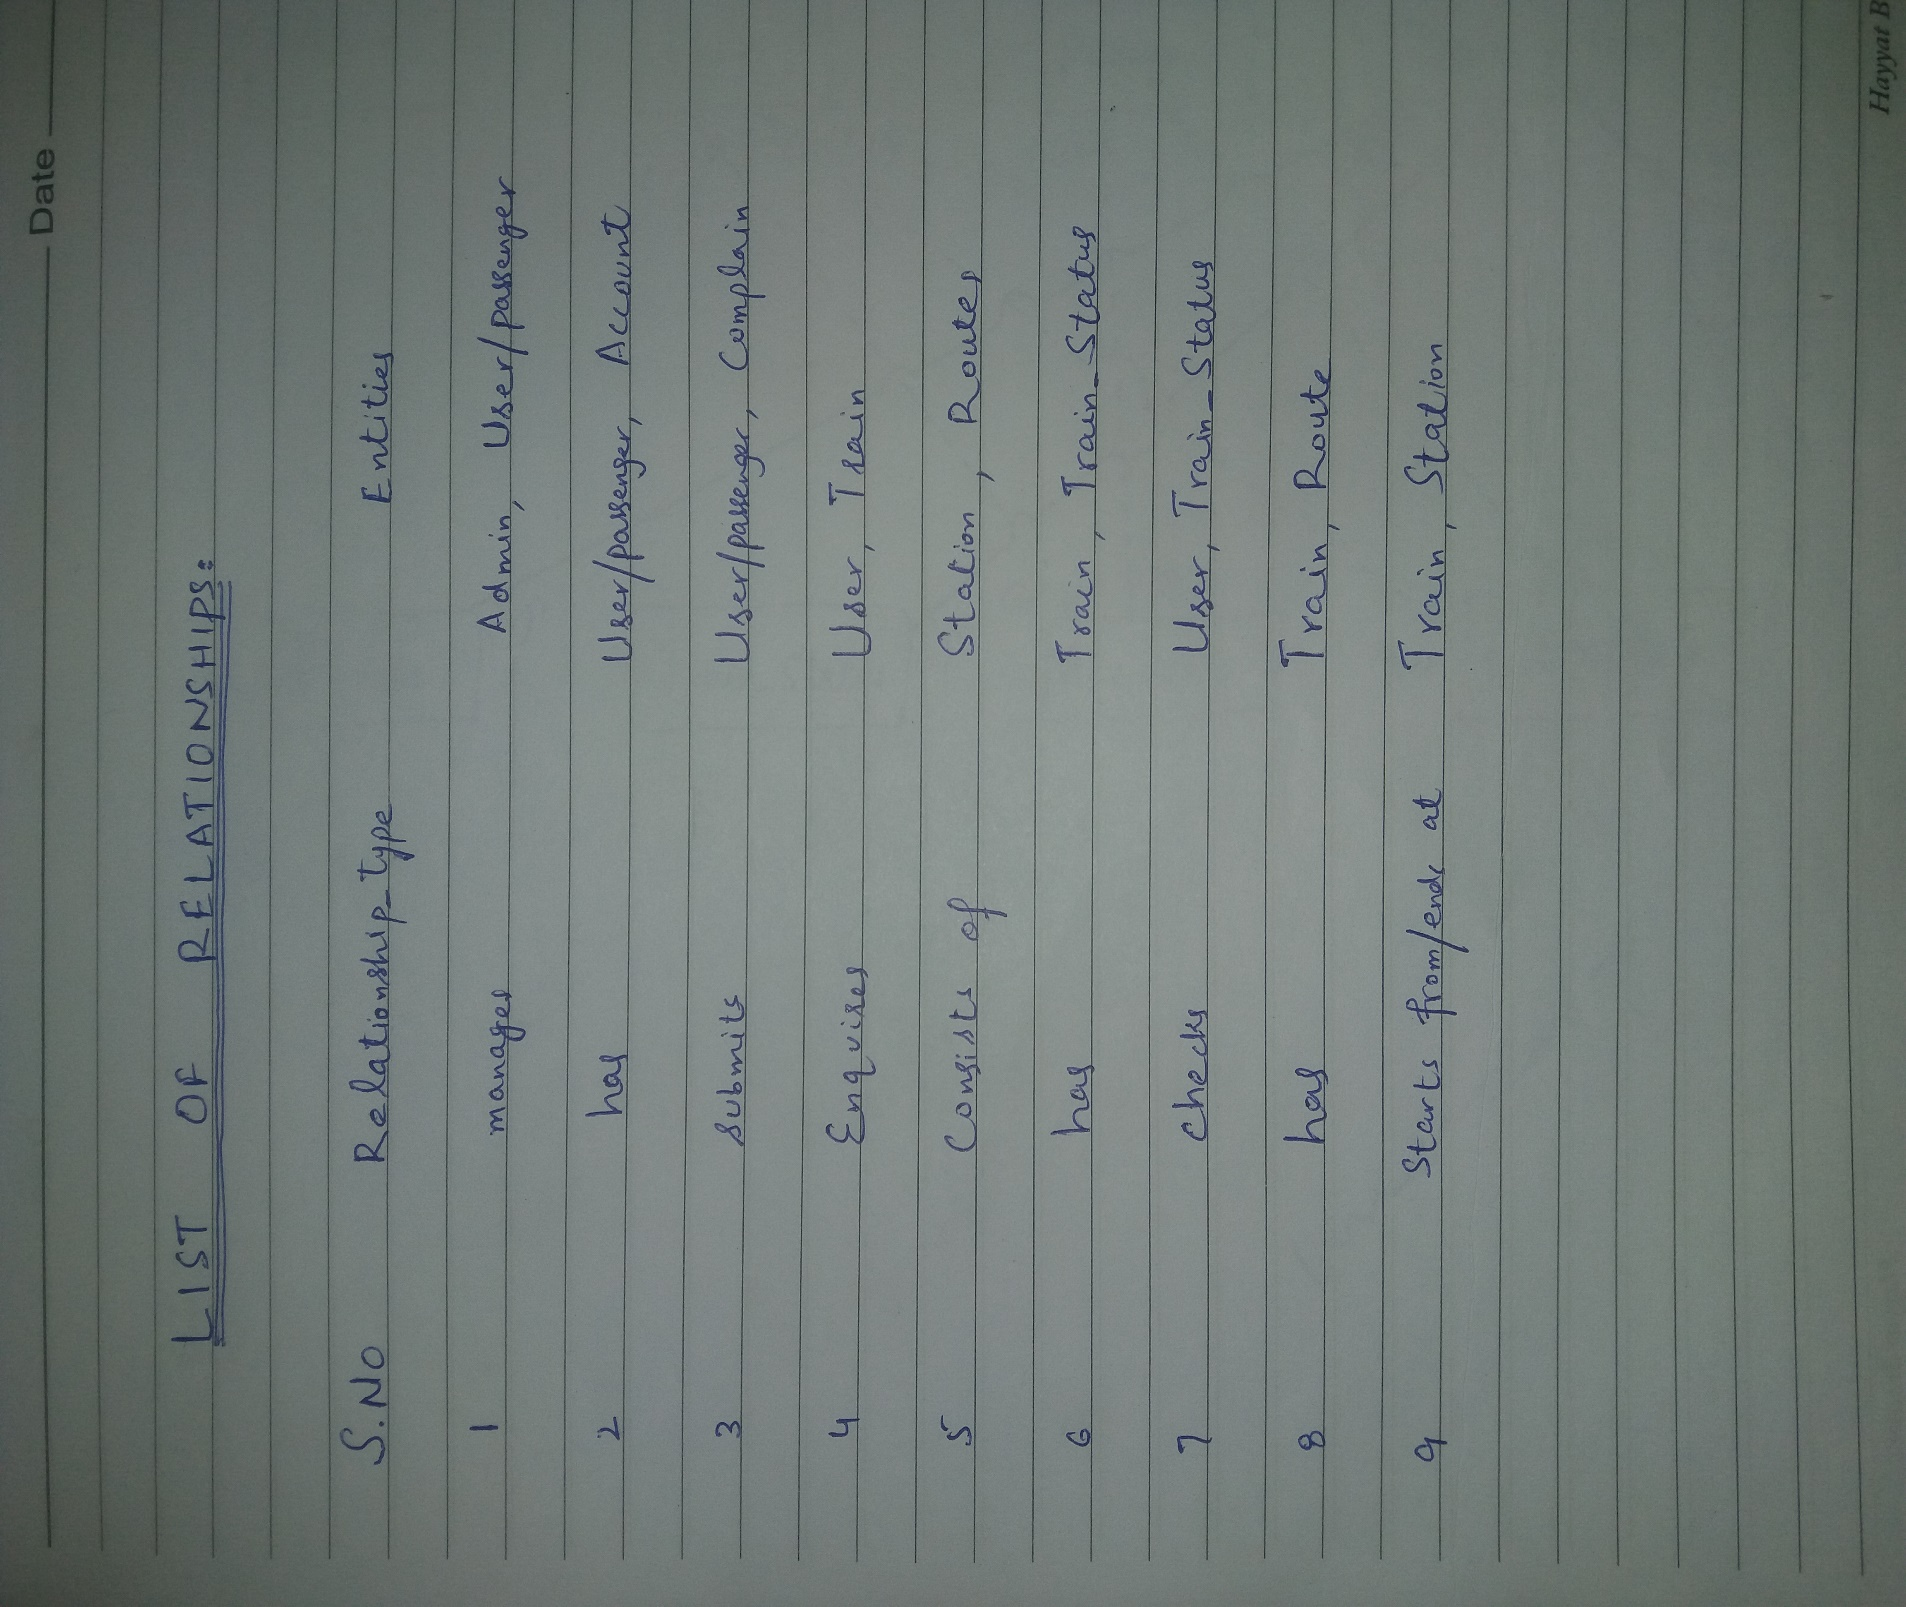 Date
LIST OF RELATIONSHIPS:
S.NO Relationship_type Entities
1 manages Admin, User/passenger
2 has User/passenger, Account
3 submits User/passenger, Complain
4 Enquires User, Train
5 Consists of Station, Routes
6 has Train, Train_Status
7 checks User, Train_Status
8 has Train, Route
9 Starts from/ends at Train, Station
Hayyat B